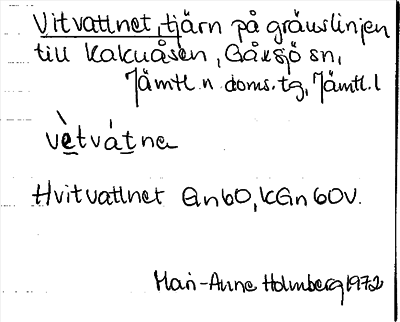 Vitvattnet, tjärn på gränslinjen
till Kakuåsen, Gåxsjö sn,
Jämtl. n. doms. tg, Jämtl. l
vètvátna
Hvitvattnet Gn60, KGn60V.
Mari-Anne Holmberg 1972